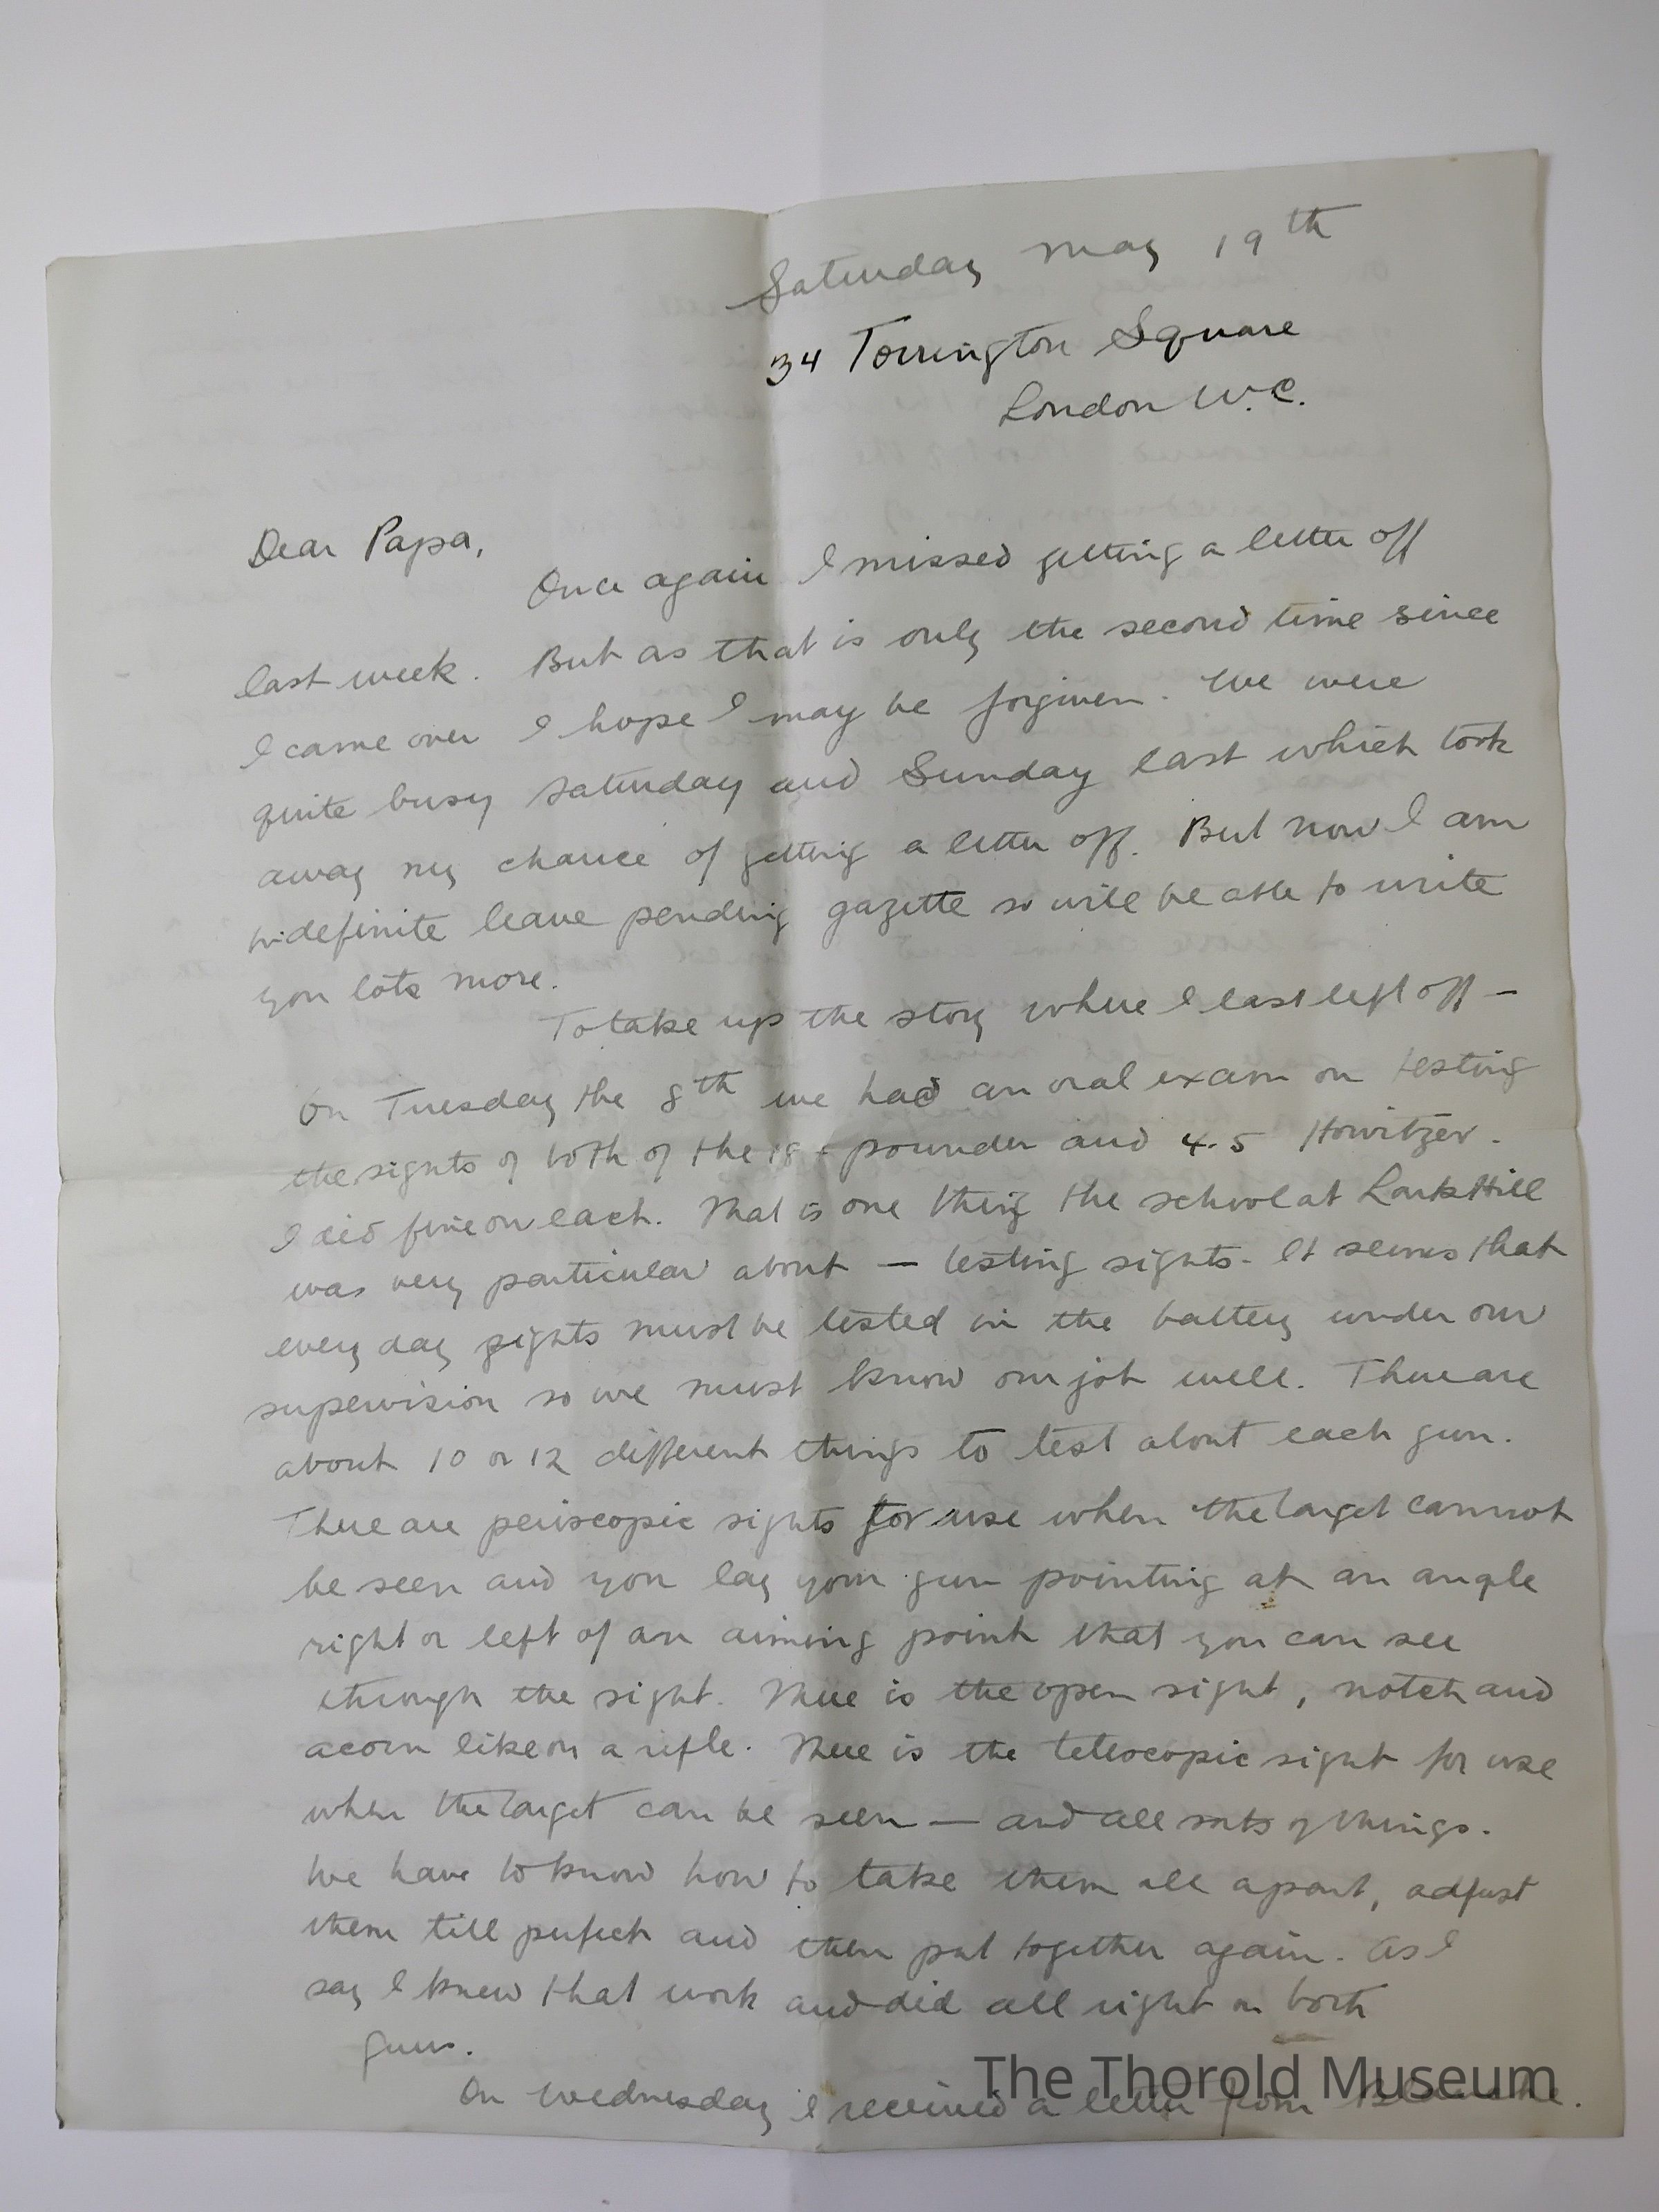 Saturday May 19th
34 Torrington Square
London W.C.
Dear Papa,
Once again I missed getting a letter off
last week. But as that is only the second time since
I came over I hope I may be forgiven. We were
quite busy Saturday and Sunday last which took
away my chance of getting a letter off. But now I am
indefinite leave pending gazette so will be able to write
you lots more.
To take up the story where I last left off –
On Tuesday the 8th we had an oral exam on testing
the sights of both of the 18-pounder and 4.5 Howitzer.
I did fine on each. That is one thing the school at Lark Hill
was very particular about — testing sights. It seems that
every day sights must be tested in the battery under our
supervision so we must know our job well. There are
about 10 or 12 different things to test about each gun.
There are periscopic sights for use when the target cannot
be seen and you lay your gun pointing at an angle
right or left of an aiming point that you can see
through the sight. There is the open sight, notch and
acorn like on a rifle. There is the telescopic sight for use
when the target can be seen — and all sorts of things.
We have to know how to take them all apart, adjust
them till perfect and then put together again. As I
say I knew that work and did all right on both
guns.
On Wednesday I received a letter from Blanche.
The Thorold Museum